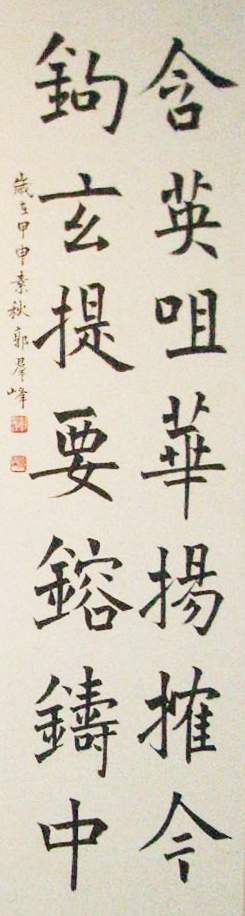 含英咀華揚搉今
鉤玄提要鎔鑄中
歲在甲申素秋郭羣峰